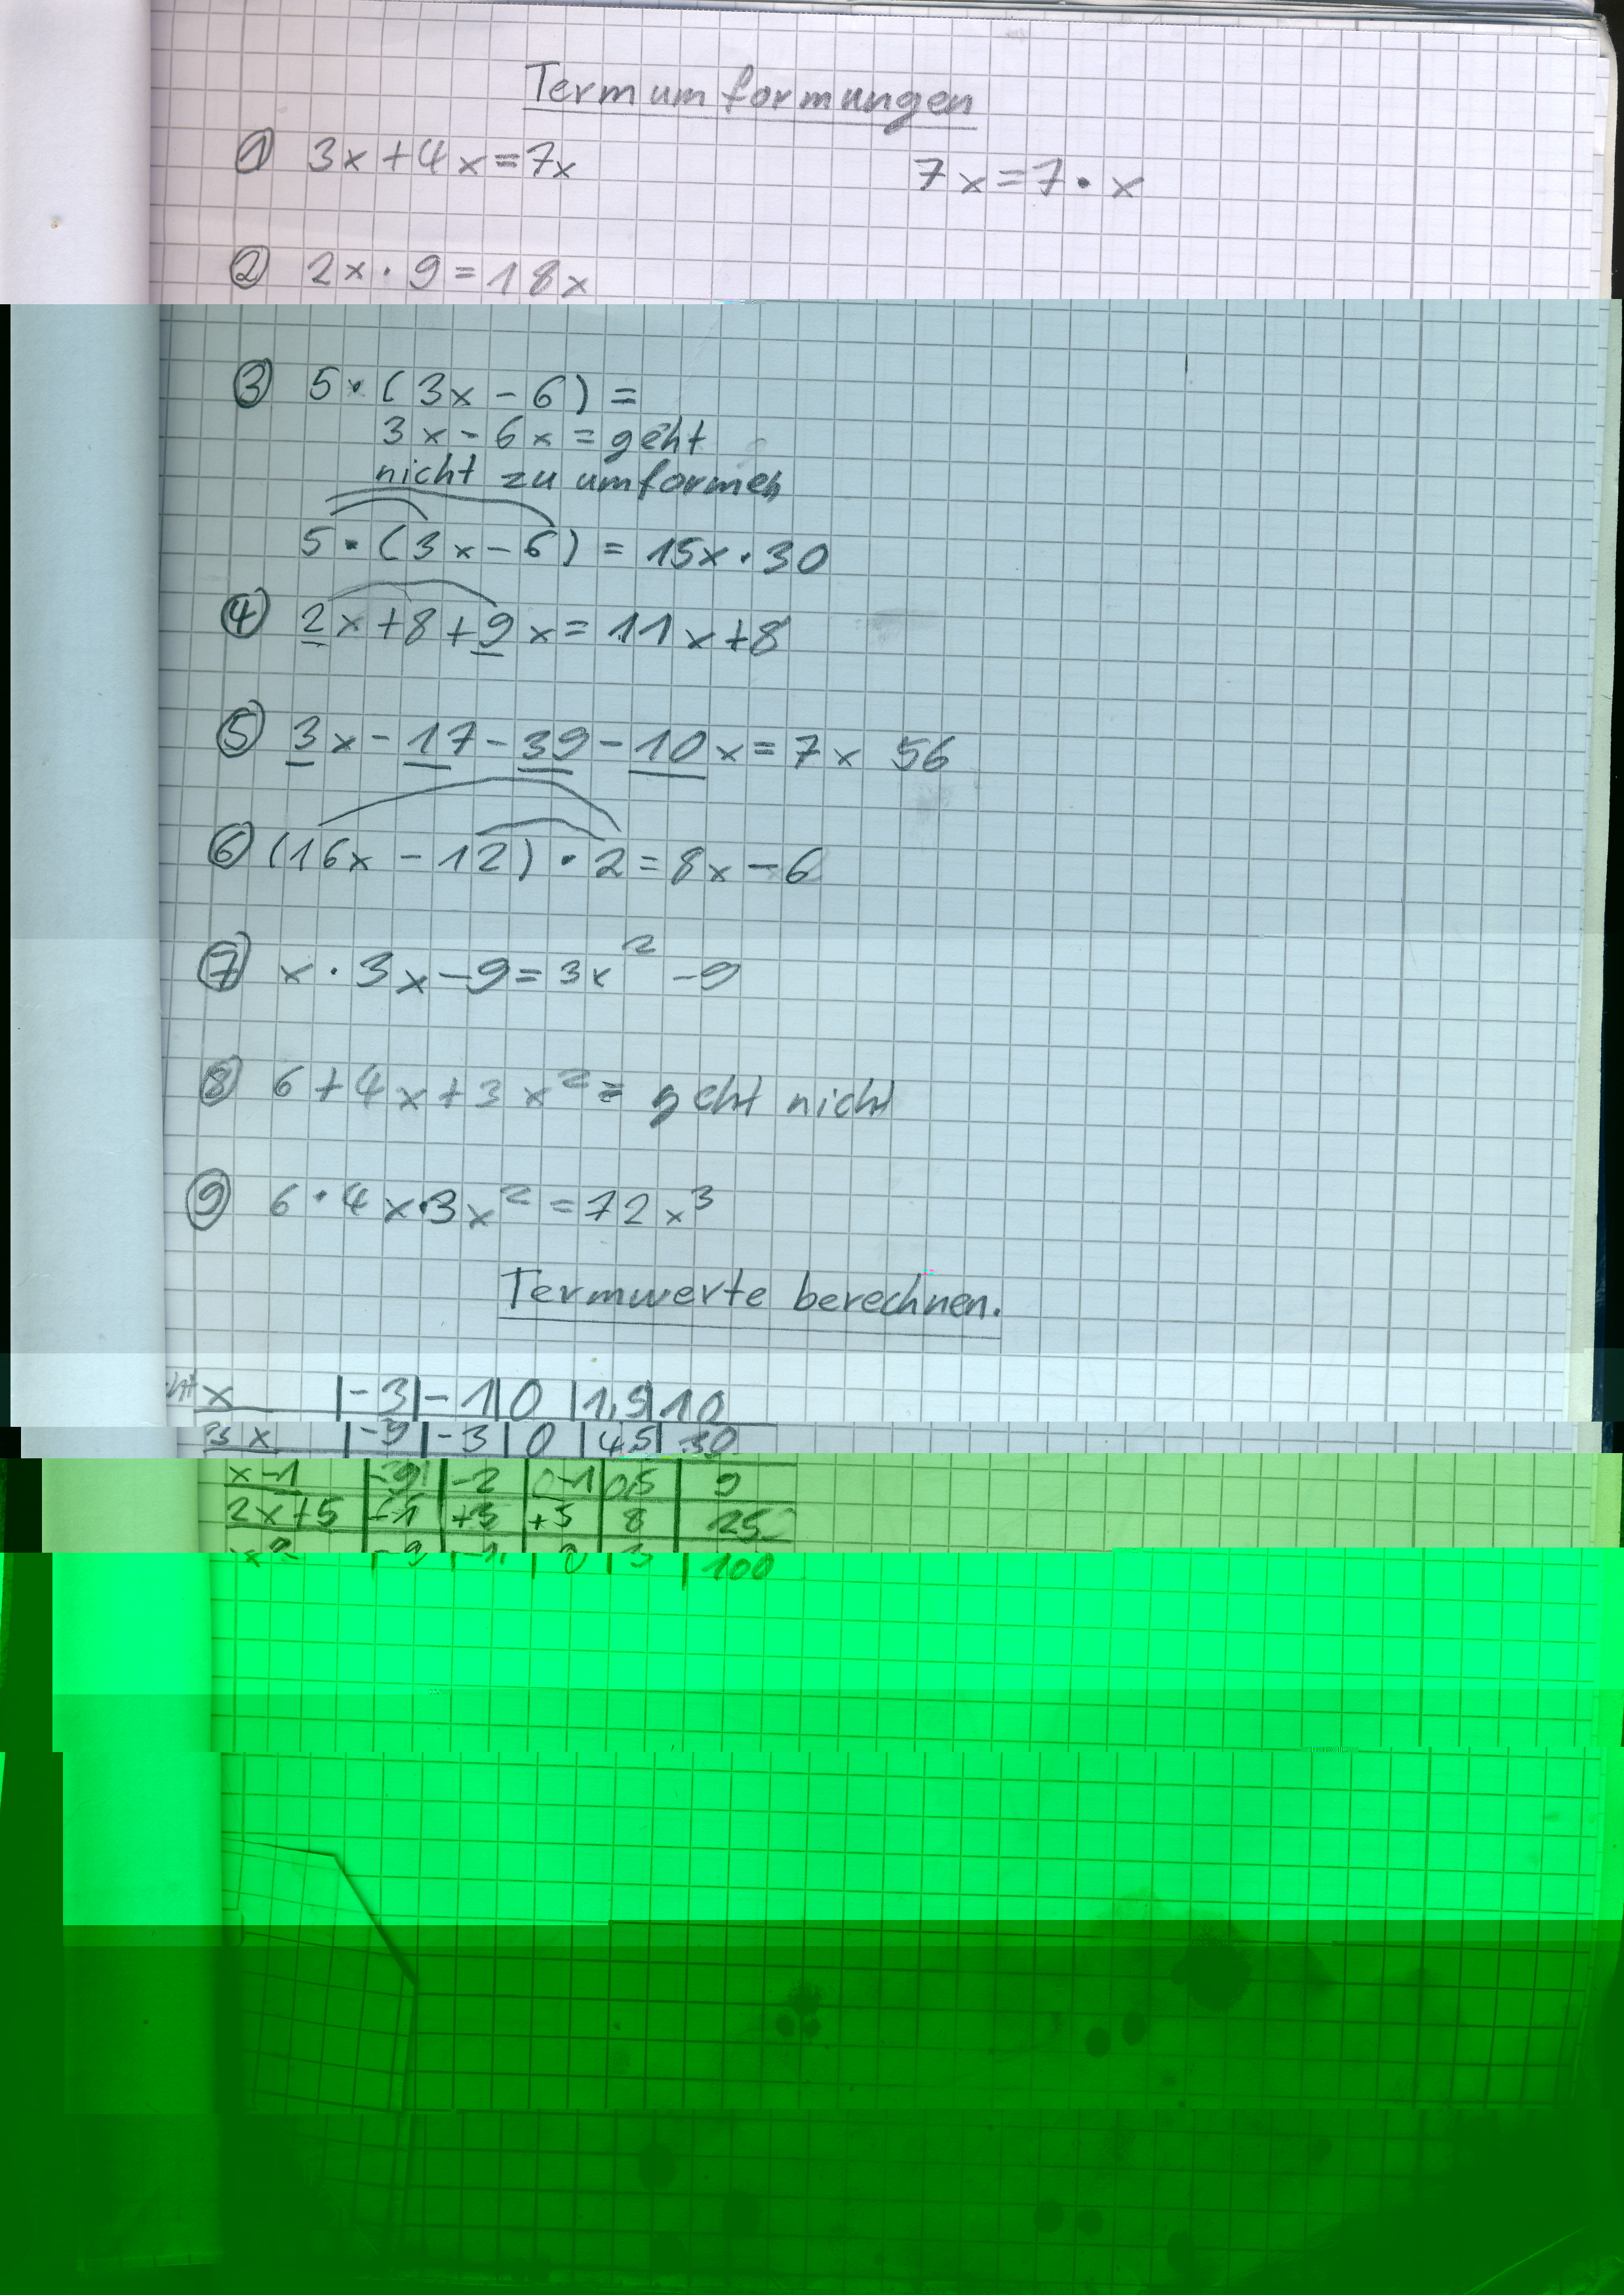 Termumformungen
① 3x+4x=7x 7x=7·x
② 2x·9=18x
③ 5·(3x-6)=
3x-6x=geht
nicht zu umformen
5·(3x-6)=15x·30
④ 2x+8+9x=11x+8
⑤ 3x-17-39-10x=7x 56
⑥ (16x-12)·2=8x-6
⑦ x·3x-9=3x²-9
⑧ 6+4x+3x²= geht nicht
⑨ 6·4x·3x²=72x³
Termwerte berechnen.
x |-3|-1|0|1,5|10
3x |-9|-3|0|4,5|30
x-1 | |-2| -1|0,5|9
2x+5 |-1|+3|+5|8|25
x² |-9|-1|0|3|100